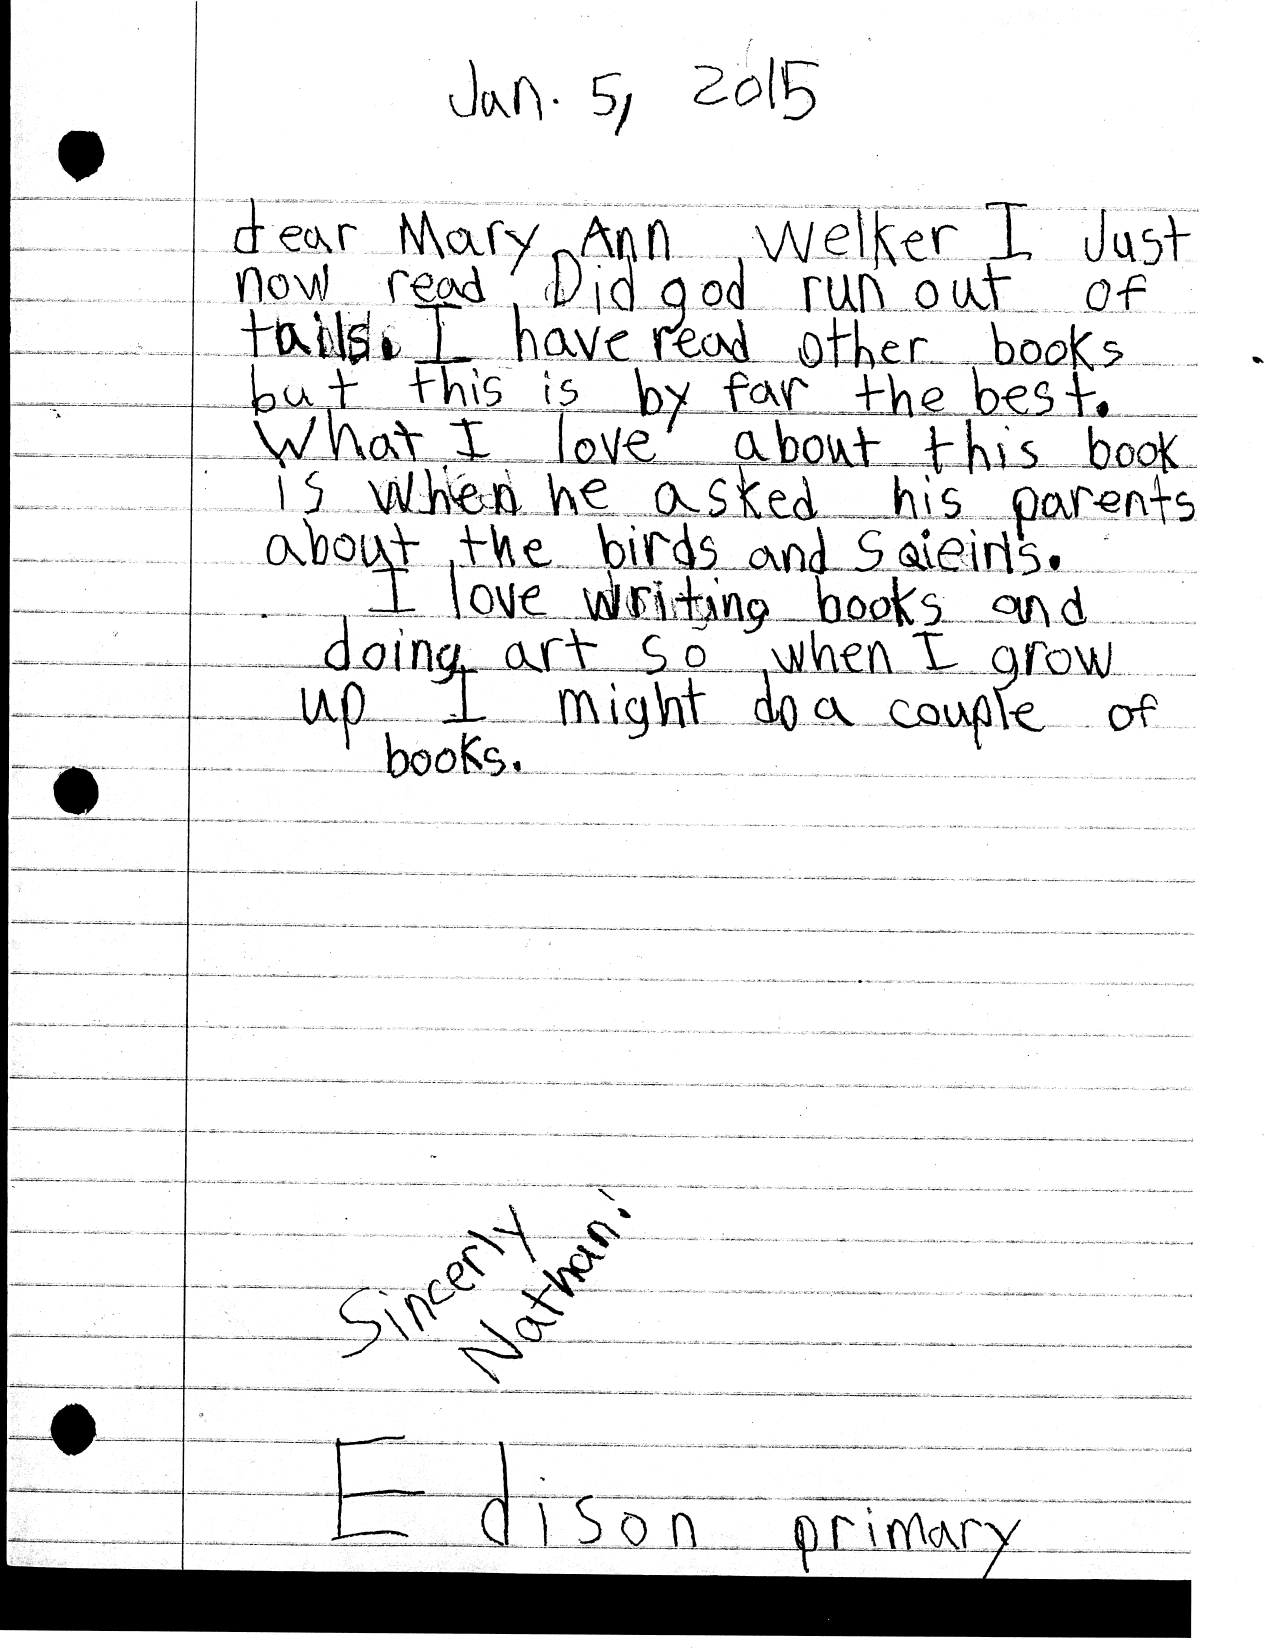 Jan. 5, 2015
dear Mary Ann Welker I Just
now read Did god run out of
tails. I have read other books
but this is by far the best.
What I love about this book
is when he asked his parents
about the birds and Sqieirls.
I love writing books and
doing art so when I grow
up I might do a couple of
books.
Sincerly
Nathan!
Edison primary